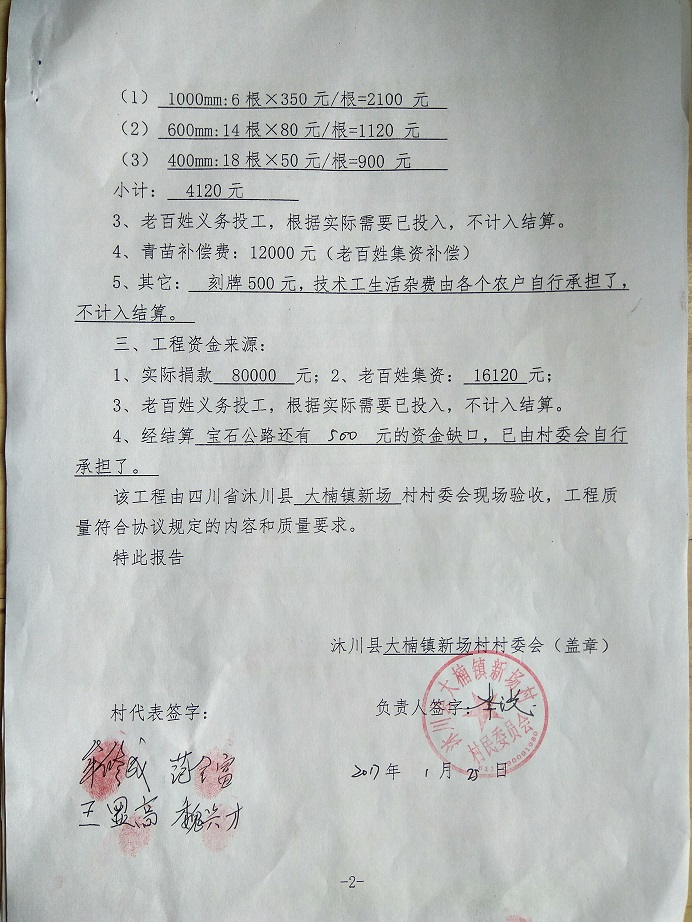 (1) 1000mm:6根×350元/根=2100 元
(2) 600mm:14根×80元/根=1120 元
(3) 400mm:18根×50元/根=900 元
小计: 4120元
3、老百姓义务投工，根据实际需要已投入，不计入结算。
4、青苗补偿费：12000元（老百姓集资补偿）
5、其它： 刻牌500元，技术工生活杂费由各个农户自行承担了，
不计入结算。
三、工程资金来源：
1、实际捐款 80000 元；2、老百姓集资： 16120 元；
3、老百姓义务投工，根据实际需要已投入，不计入结算。
4、经结算 宝石公路还有 500 元的资金缺口，已由村委会自行
承担了。
该工程由四川省沐川县 大楠镇新场 村村委会现场验收，工程质
量符合协议规定的内容和质量要求。
特此报告
沐川县大楠镇新场村村委会（盖章）
村代表签字：
负责人签字：李
沐川县大楠镇新场村
村民委员会
2017年 1月25日
王显高 魏兴才
-2-